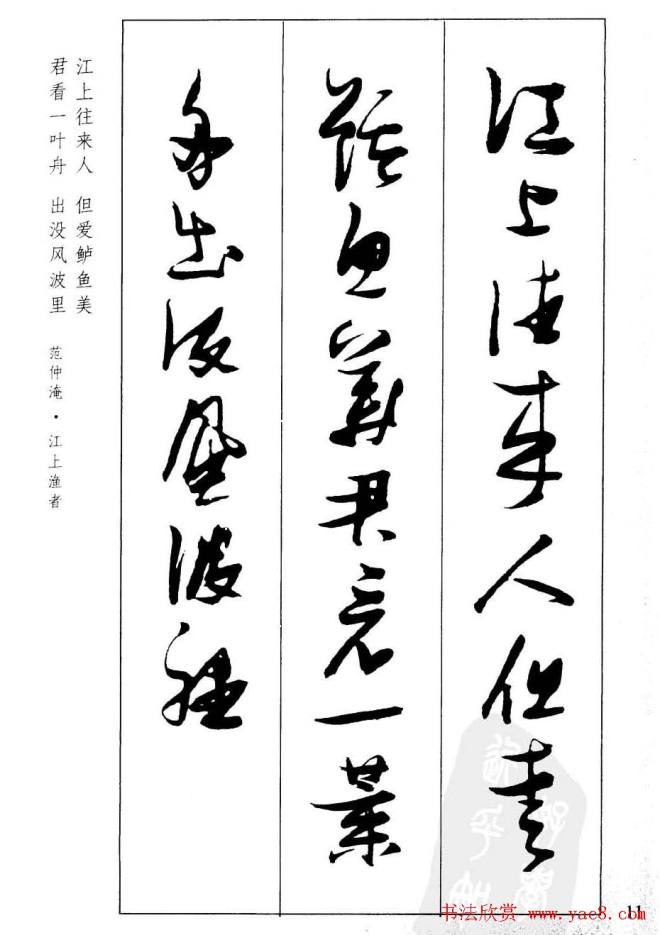 江上往来人但爱
鲈鱼美君看一葉
舟出没风波裡
江上往来人 但爱鲈鱼美
君看一叶舟 出没风波里 范仲淹·江上渔者
11
书法欣赏 www.yac8.com